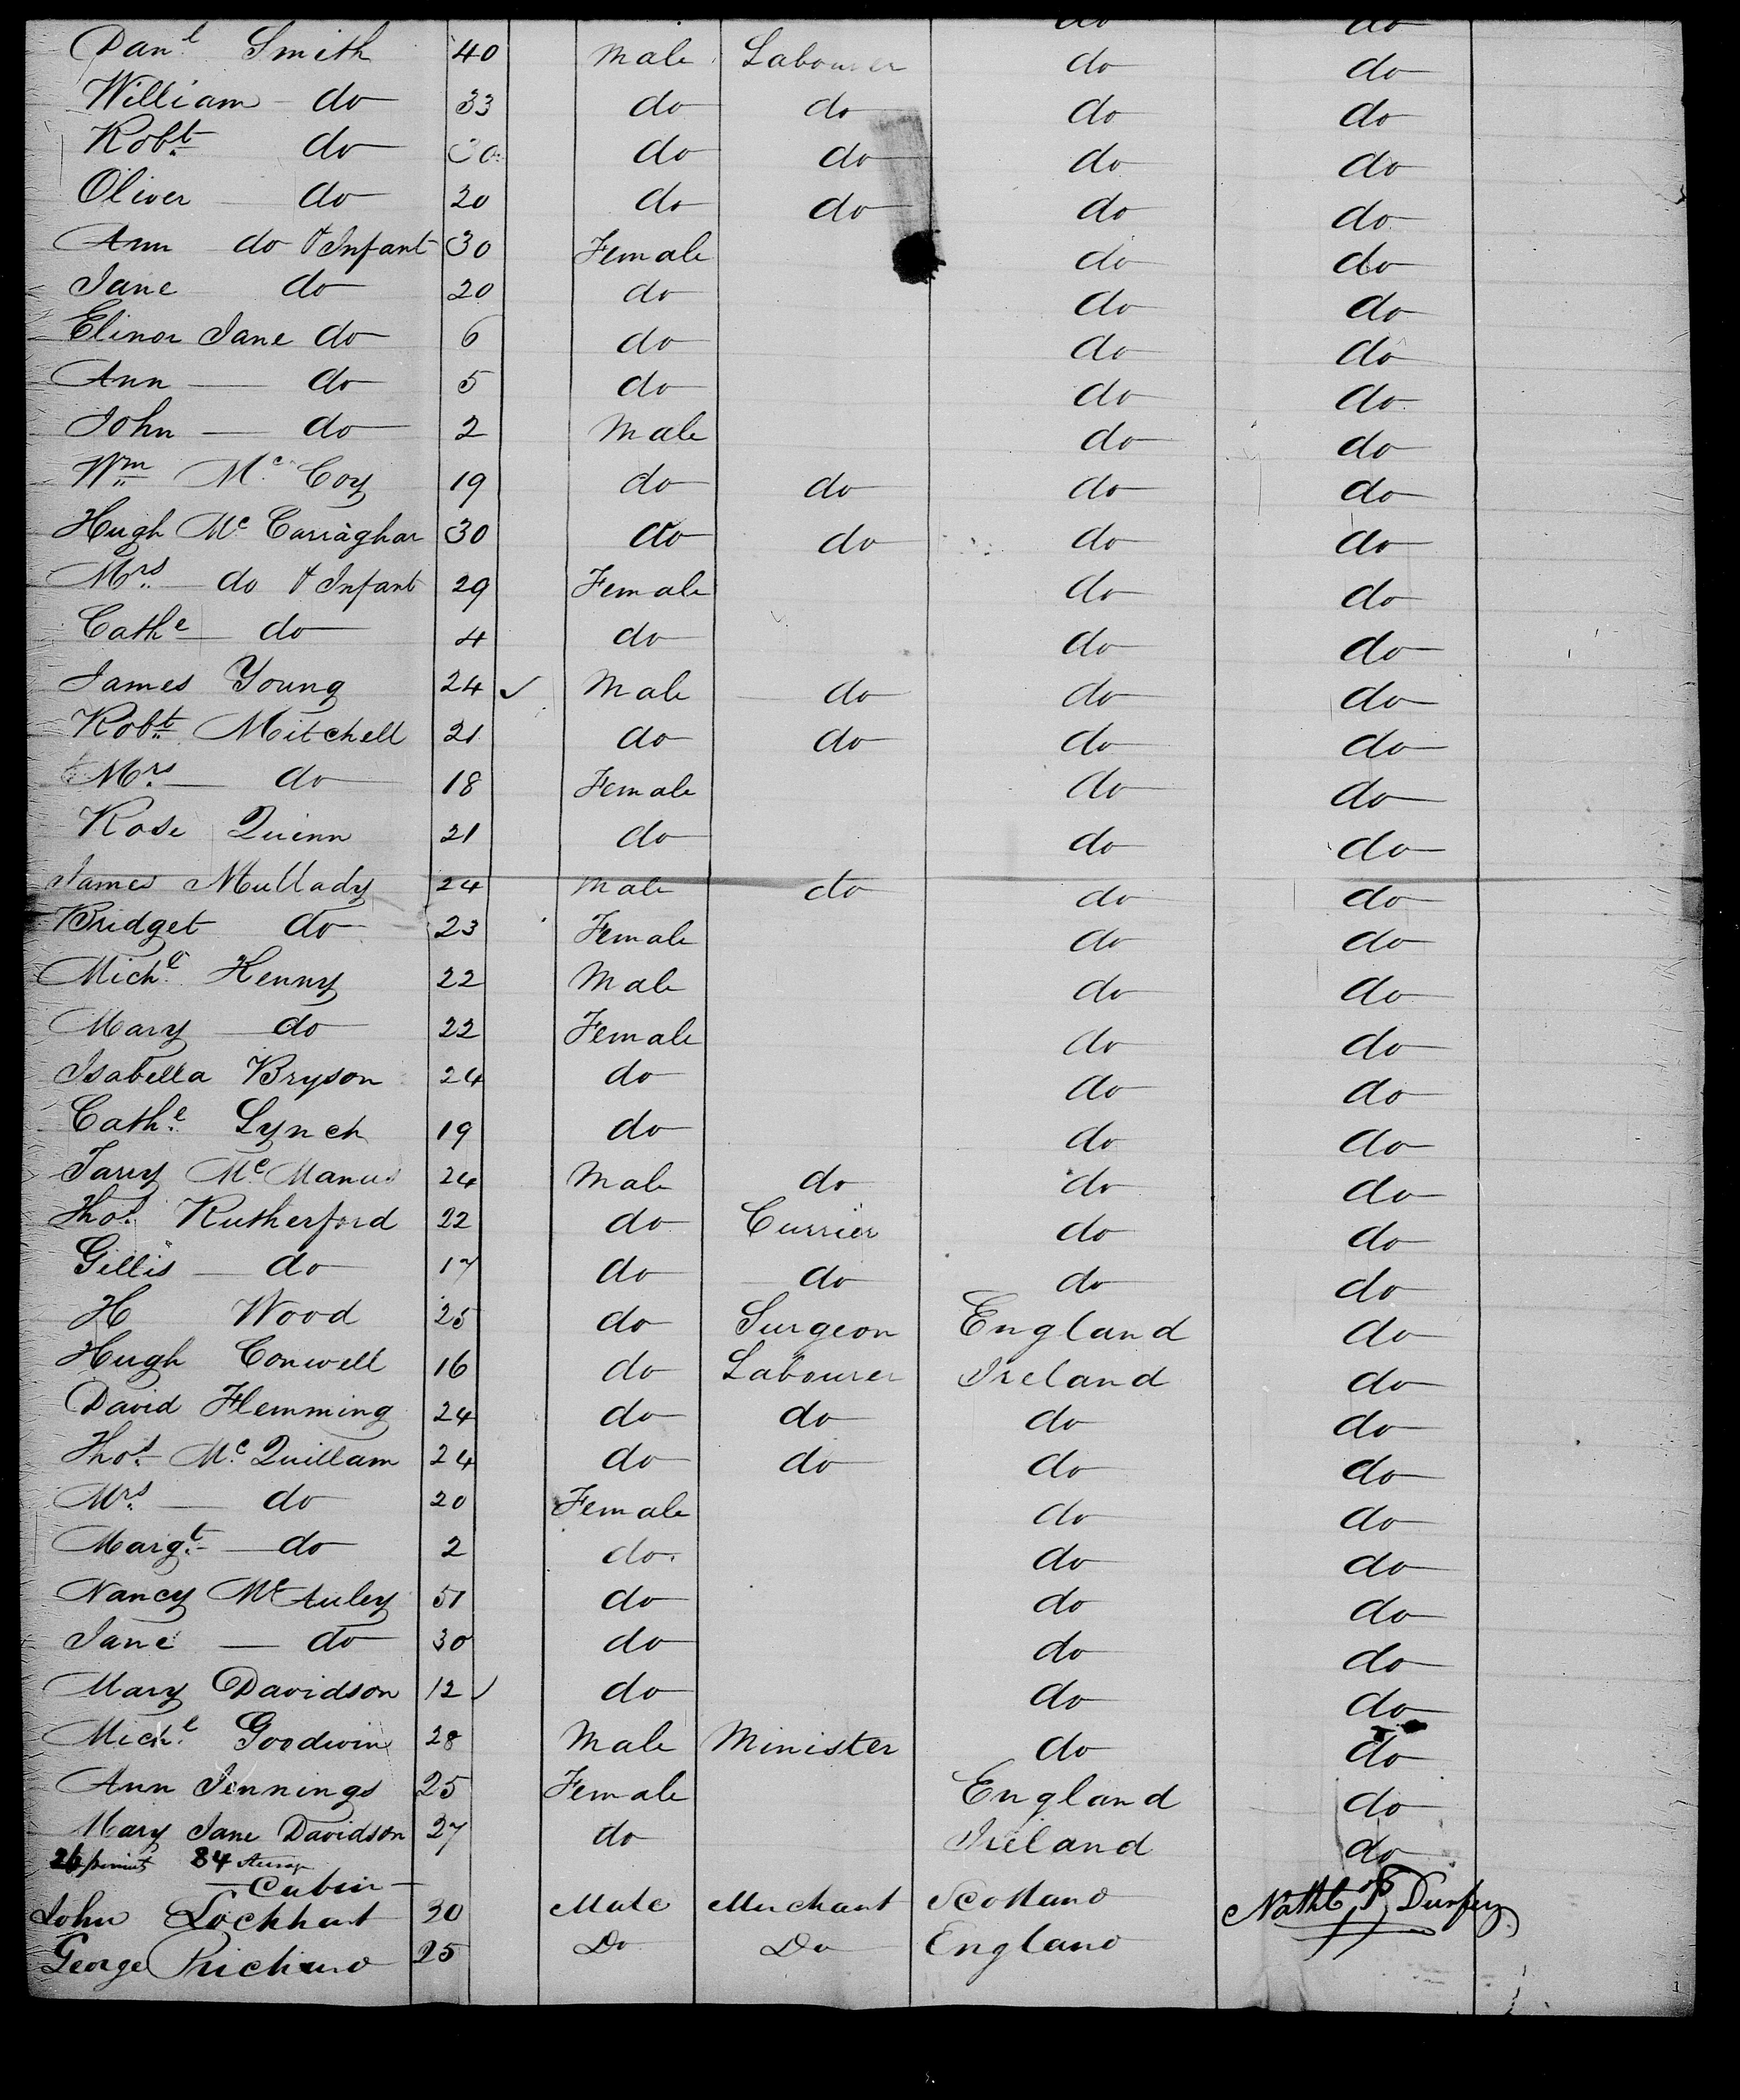 do do
Danl Smith 40 Male Labourer do do
William do 33 do do do do
Robt do do do do do
Oliver do 20 do do do do
Ann do & Infant 30 Female do do
Jane do 20 do do do
Elinor Jane do 6 do do do
Ann do 5 do do do
John do 2 Male do do
Wm McCoy 19 do do do do
Hugh McCarraghar 30 do do do do
Mrs do & Infant 29 Female do do
Cathe do 4 do do do
James Young 24 ✓ Male do do do
Robt Mitchell 21 do do do do
Mrs do 18 Female do do
Rose Quinn 21 do do do
James Mullady 24 Male do do do
Bridget do 23 Female do do
Michl Henny 22 Male do do
Mary do 22 Female do do
Isabella Bryson 24 do do do
Cathe Lynch 19 do do do
Tarry McManus 24 Male do do do
Thos Rutherford 22 do Currier do do
Gillis do 17 do do do do
H Wood 25 do Surgeon England do
Hugh Conwell 16 do Labourer Ireland do
David Flemming 24 do do do do
Thos McQuillam 24 do do do do
Mrs do 20 Female do do
Margt do 2 do do do
Nancy McAuley 51 do do do
Jane do 30 do do do
Mary Davidson 12 ✓ do do do
Michl Goodwin 28 Male Minister do do
Ann Jennings 25 Female England do
Mary Jane Davidson 27 do Ireland do
26 84
Cabin
John Lockhart 30 Male Merchant Scotland Nathl P Durfey
George Prichard 25 Do Do England